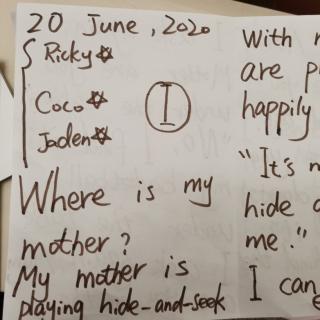 20 June, 2020
Ricky
Coco
Jaden
I
Where is my
mother?
My mother is
playing hide-and-seek
With
are
happily
"It's
hide
me."
I can